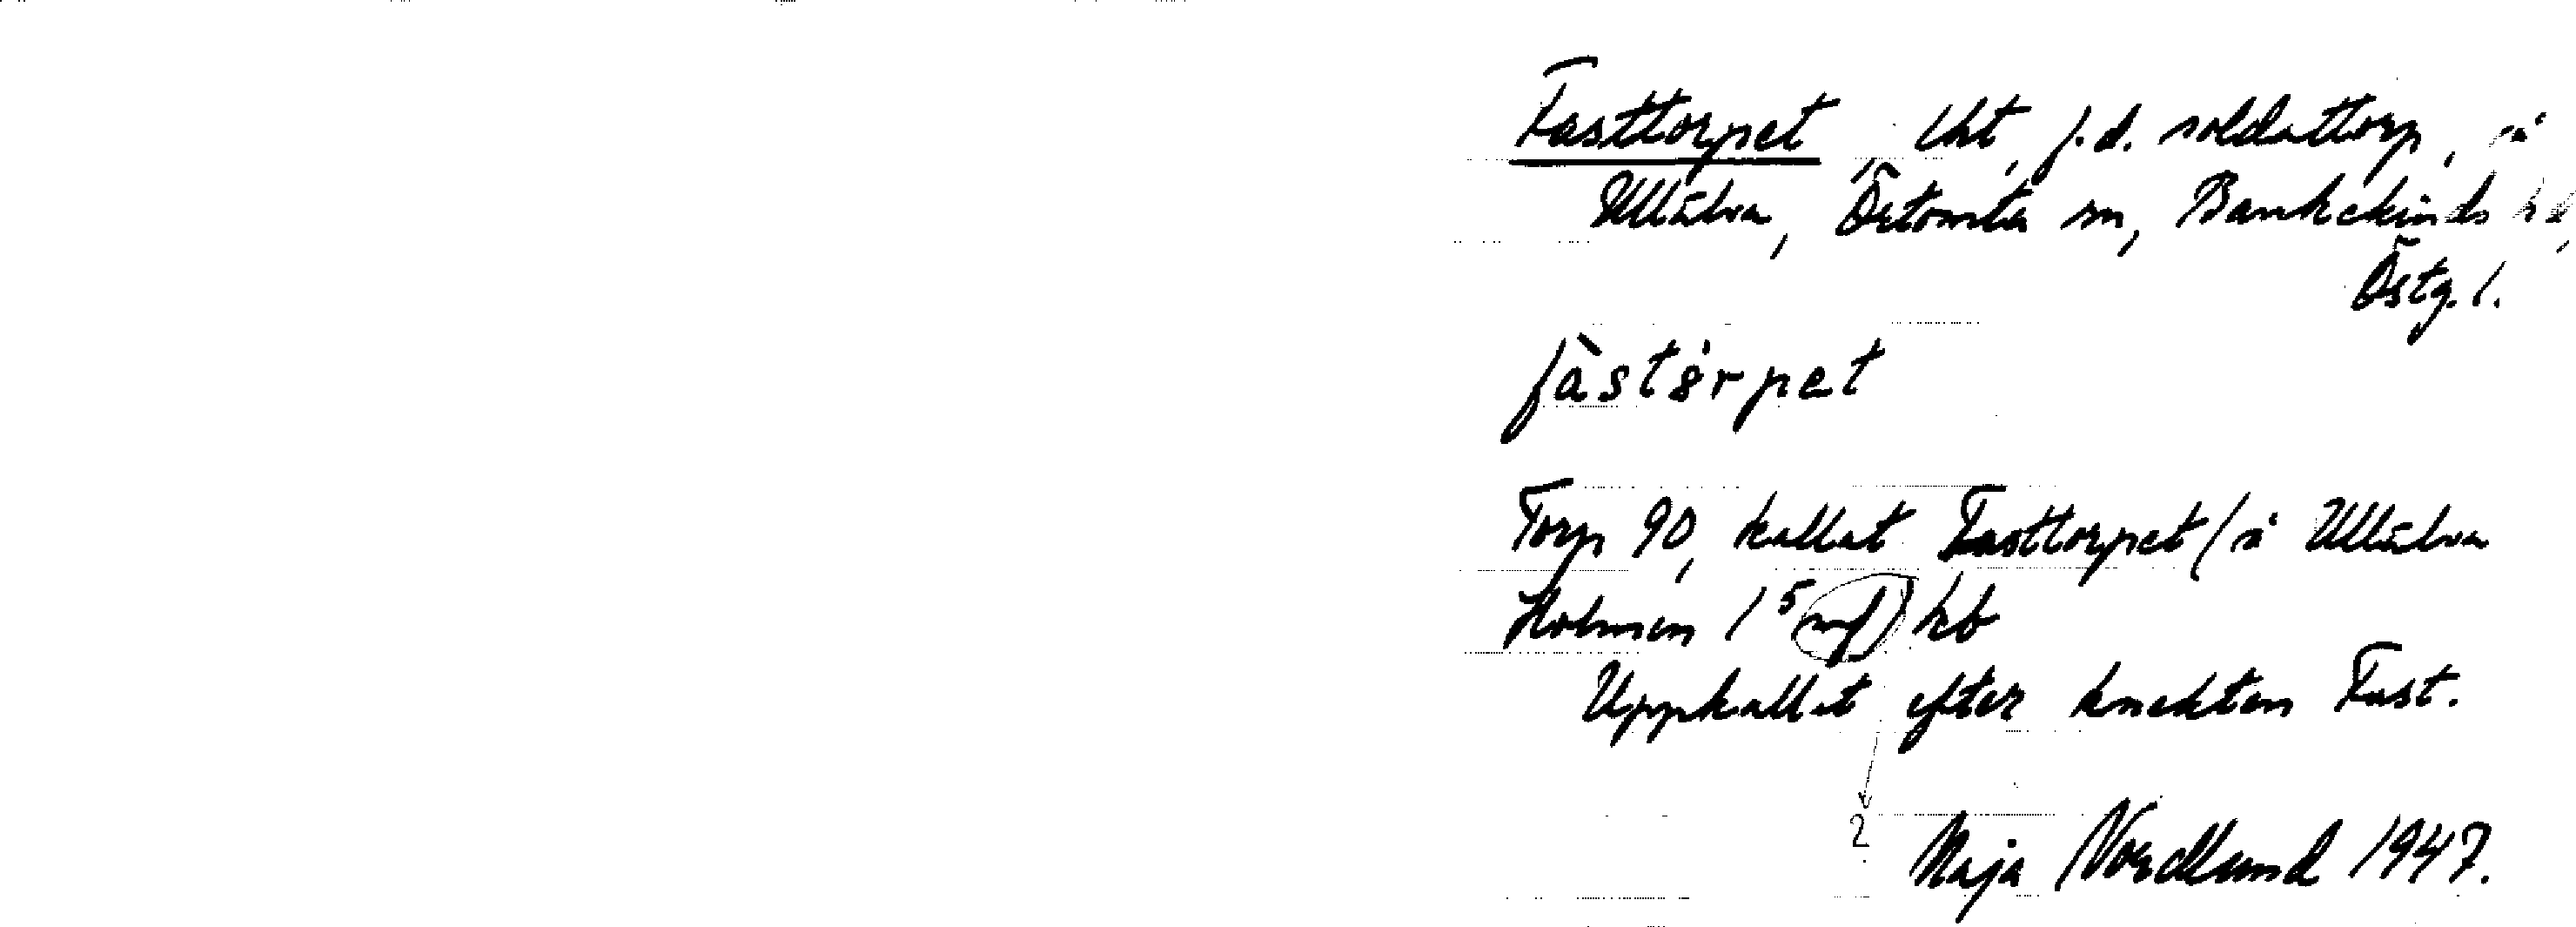 Fasttorpet, lht, f.d. soldattorp, å
Ullälva, Östomta sn, Bankekinds hd,
Östg. l.
fàstȯ̀rpet
Torp 90, kallat Fasttorpet / å Ullälva
Holmen 1⁵ mf kb
Uppkallat efter knekten Fast.
2
Maja Nordlund 1947.